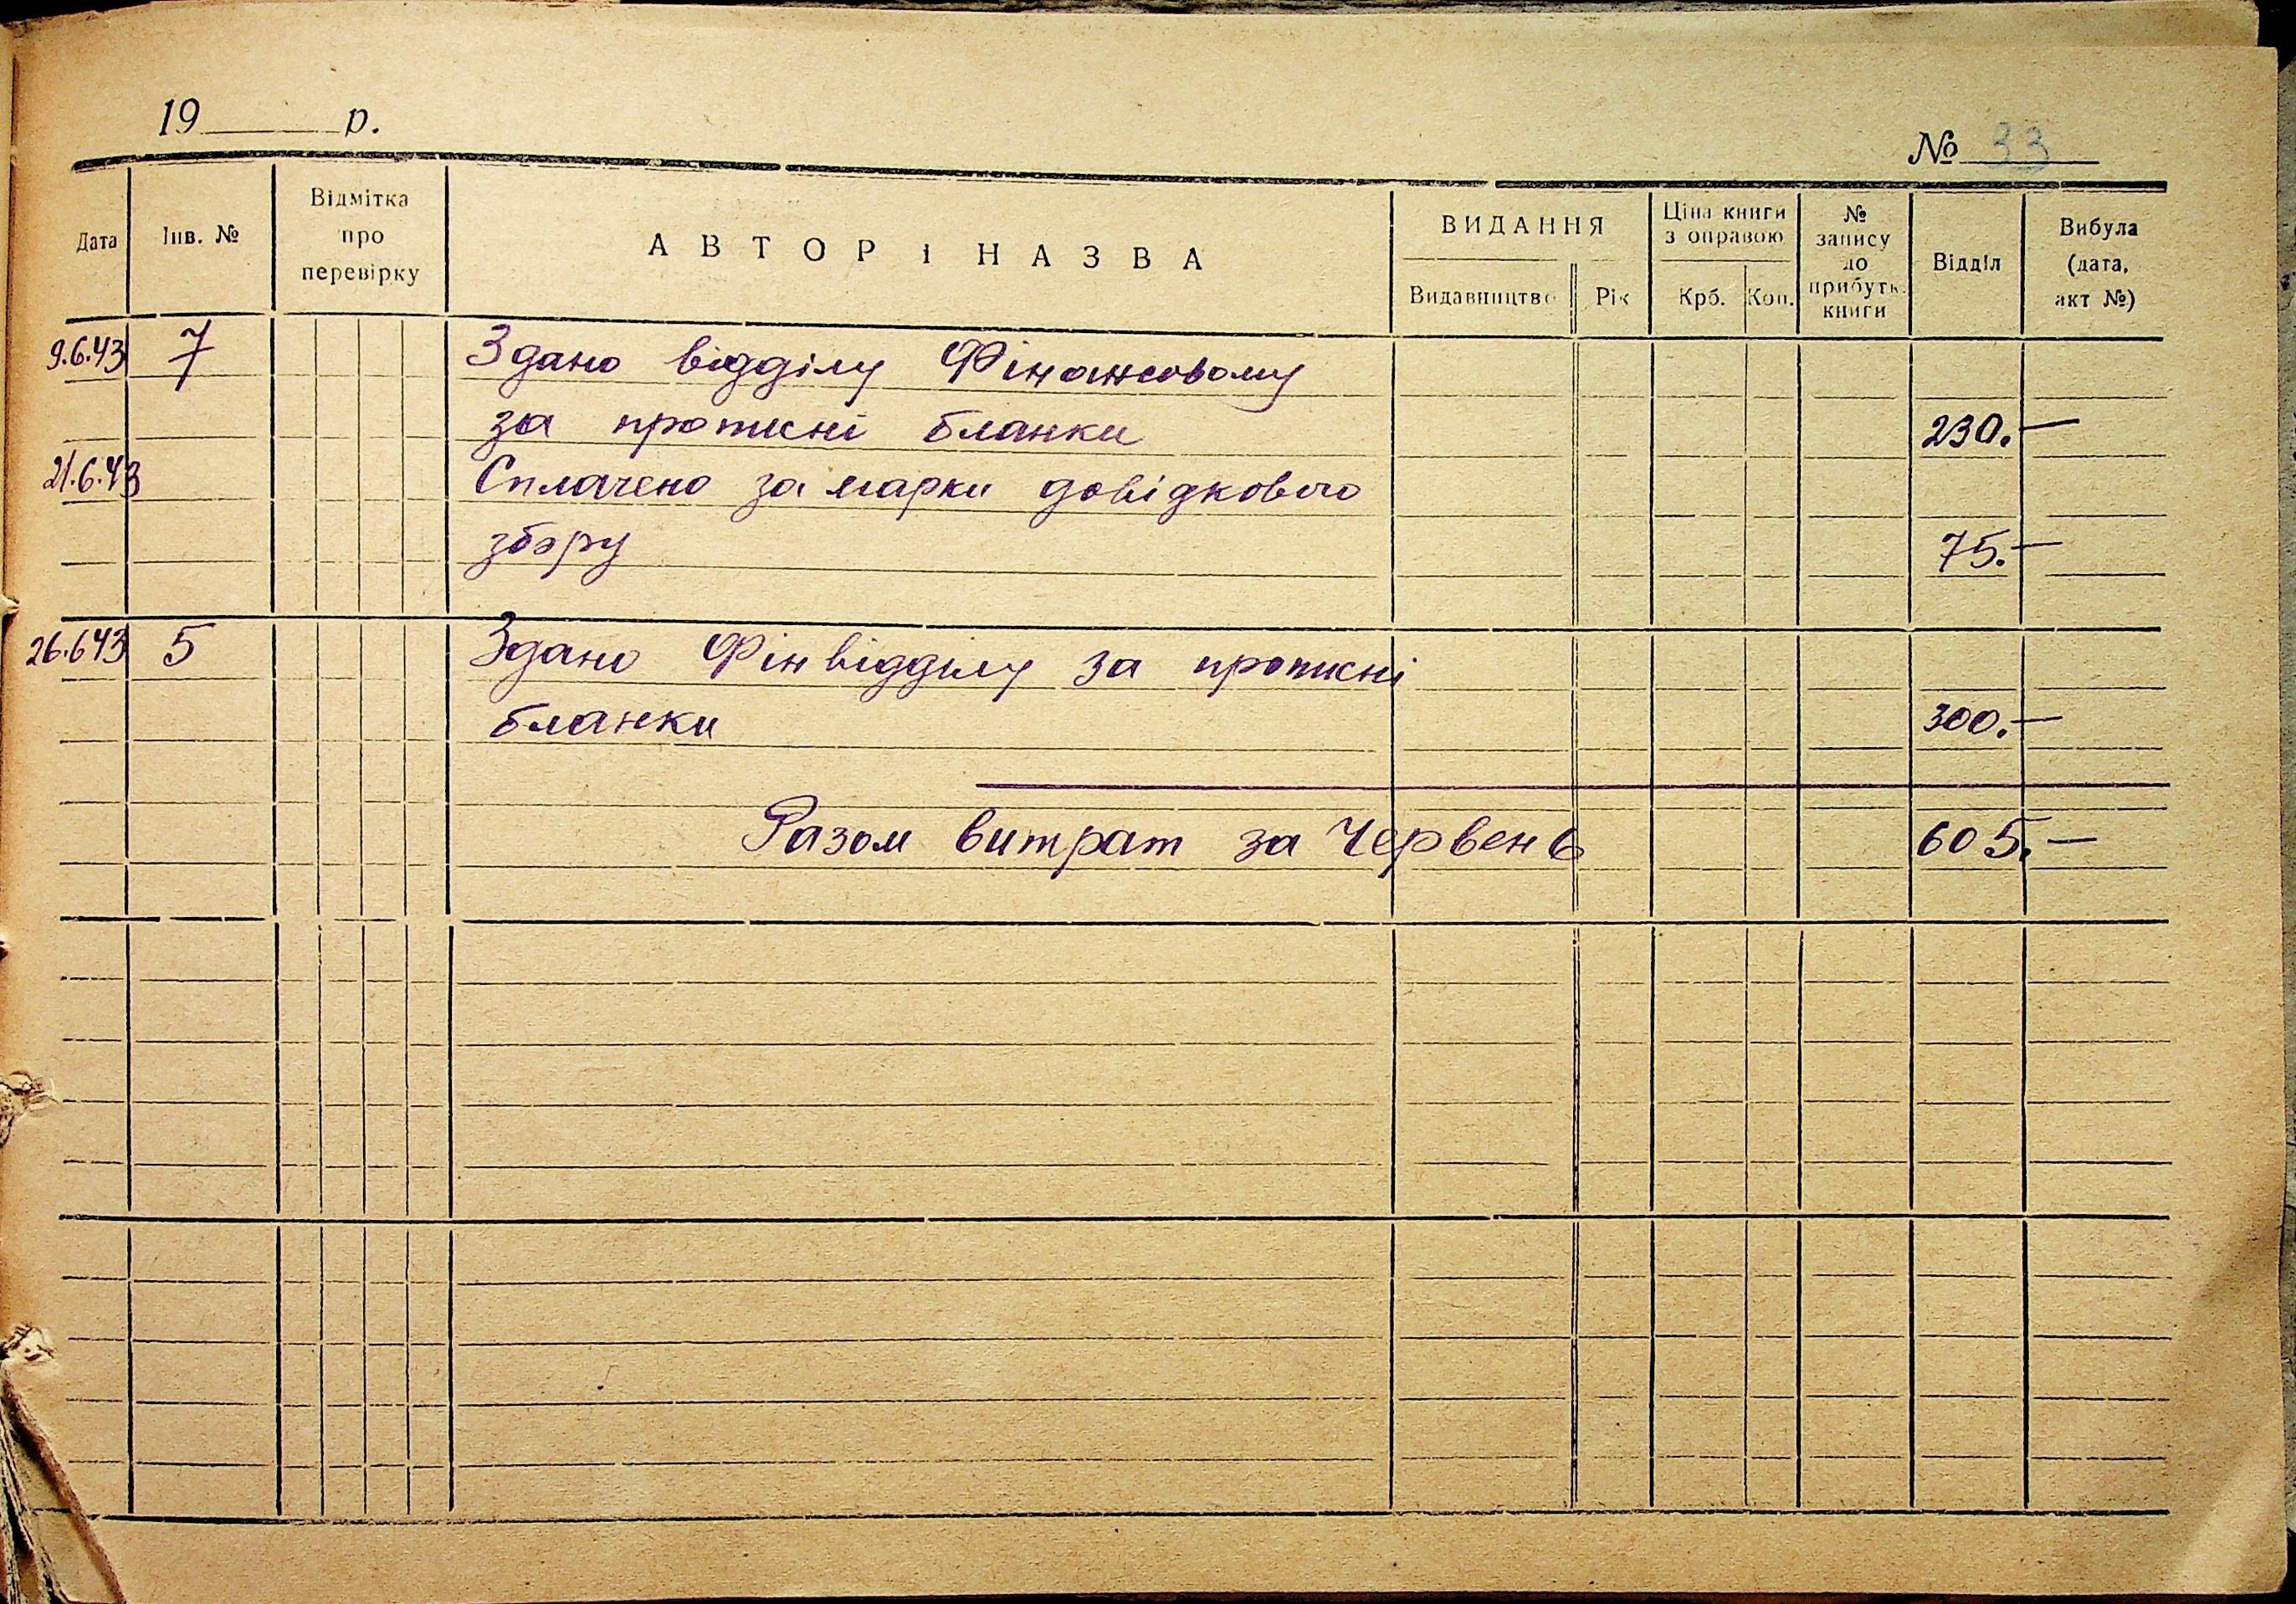 19 р.
№ 33
Дата
Інв. №
Відмітка
про
перевірку
АВТОР І НАЗВА
ВИДАННЯ
Видавництво
Рік
Ціна книги
з оправою
Крб.
Коп.
№
запису
до
прибутк.
книги
Відділ
Вибула
(дата,
акт №)
9.6.43 7 Здано відділу Фінансовому
за прописні бланки 230.—
21.6.43 Сплачено за марки довідкового
збору 75.—
26.643 5 Здано Фінвідділу за прописні
бланки 300.—
Разом витрат за Червень 605.—